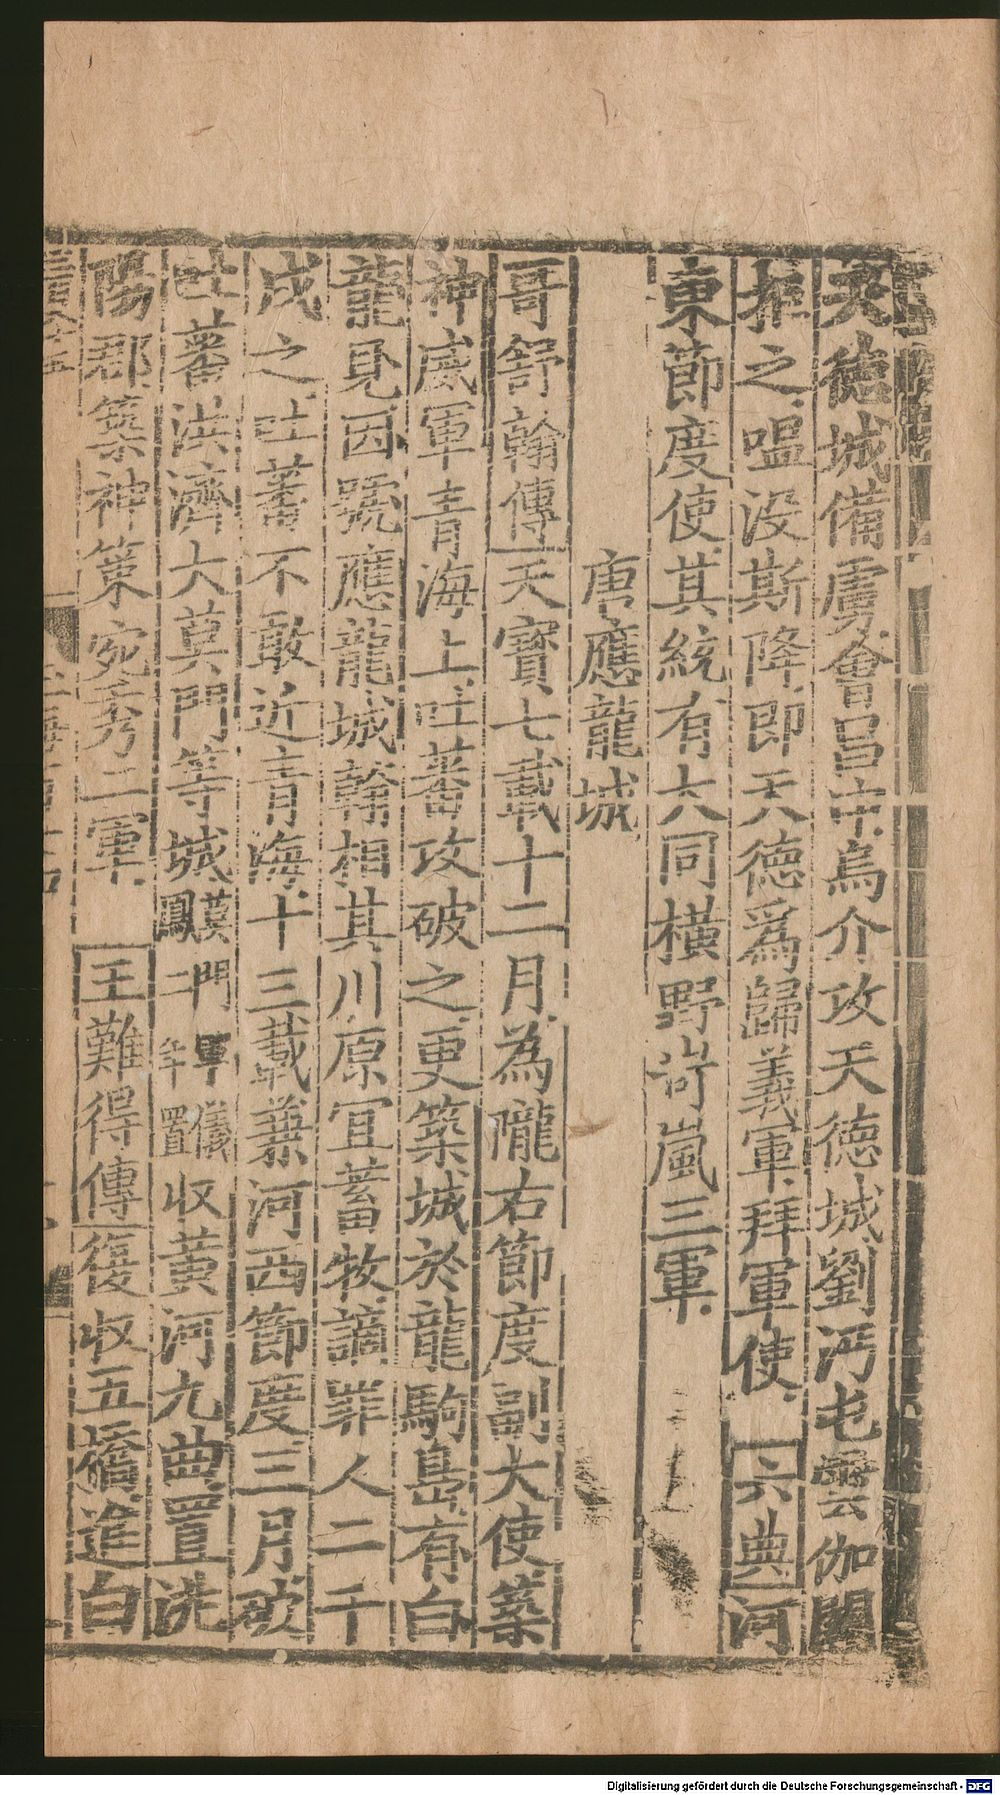 天德城備虜會昌中烏介攻天德城劉沔屯雲伽關
拒之嗢没斯降即天德爲歸義軍拜軍使六典河
東節度使其統有大同橫野岢嵐三軍
唐應龍城
哥舒翰傳天寶七載十二月為隴右節度副大使築
神威軍青海上吐蕃攻破之更築城於龍駒島有白
龍見因號應龍城翰相其川原宜蓄牧謫罪人二千
戍之吐蕃不敢近青海十三載兼河西節度三月破
吐蕃洪濟大莫門等城漠門軍儀鳳二年置収黃河九曲置洮
陽郡築神策宛秀二軍王難得傳復収五橋進白
Digitalisierung gefördert durch die Deutsche Forschungsgemeinschaft - DFG